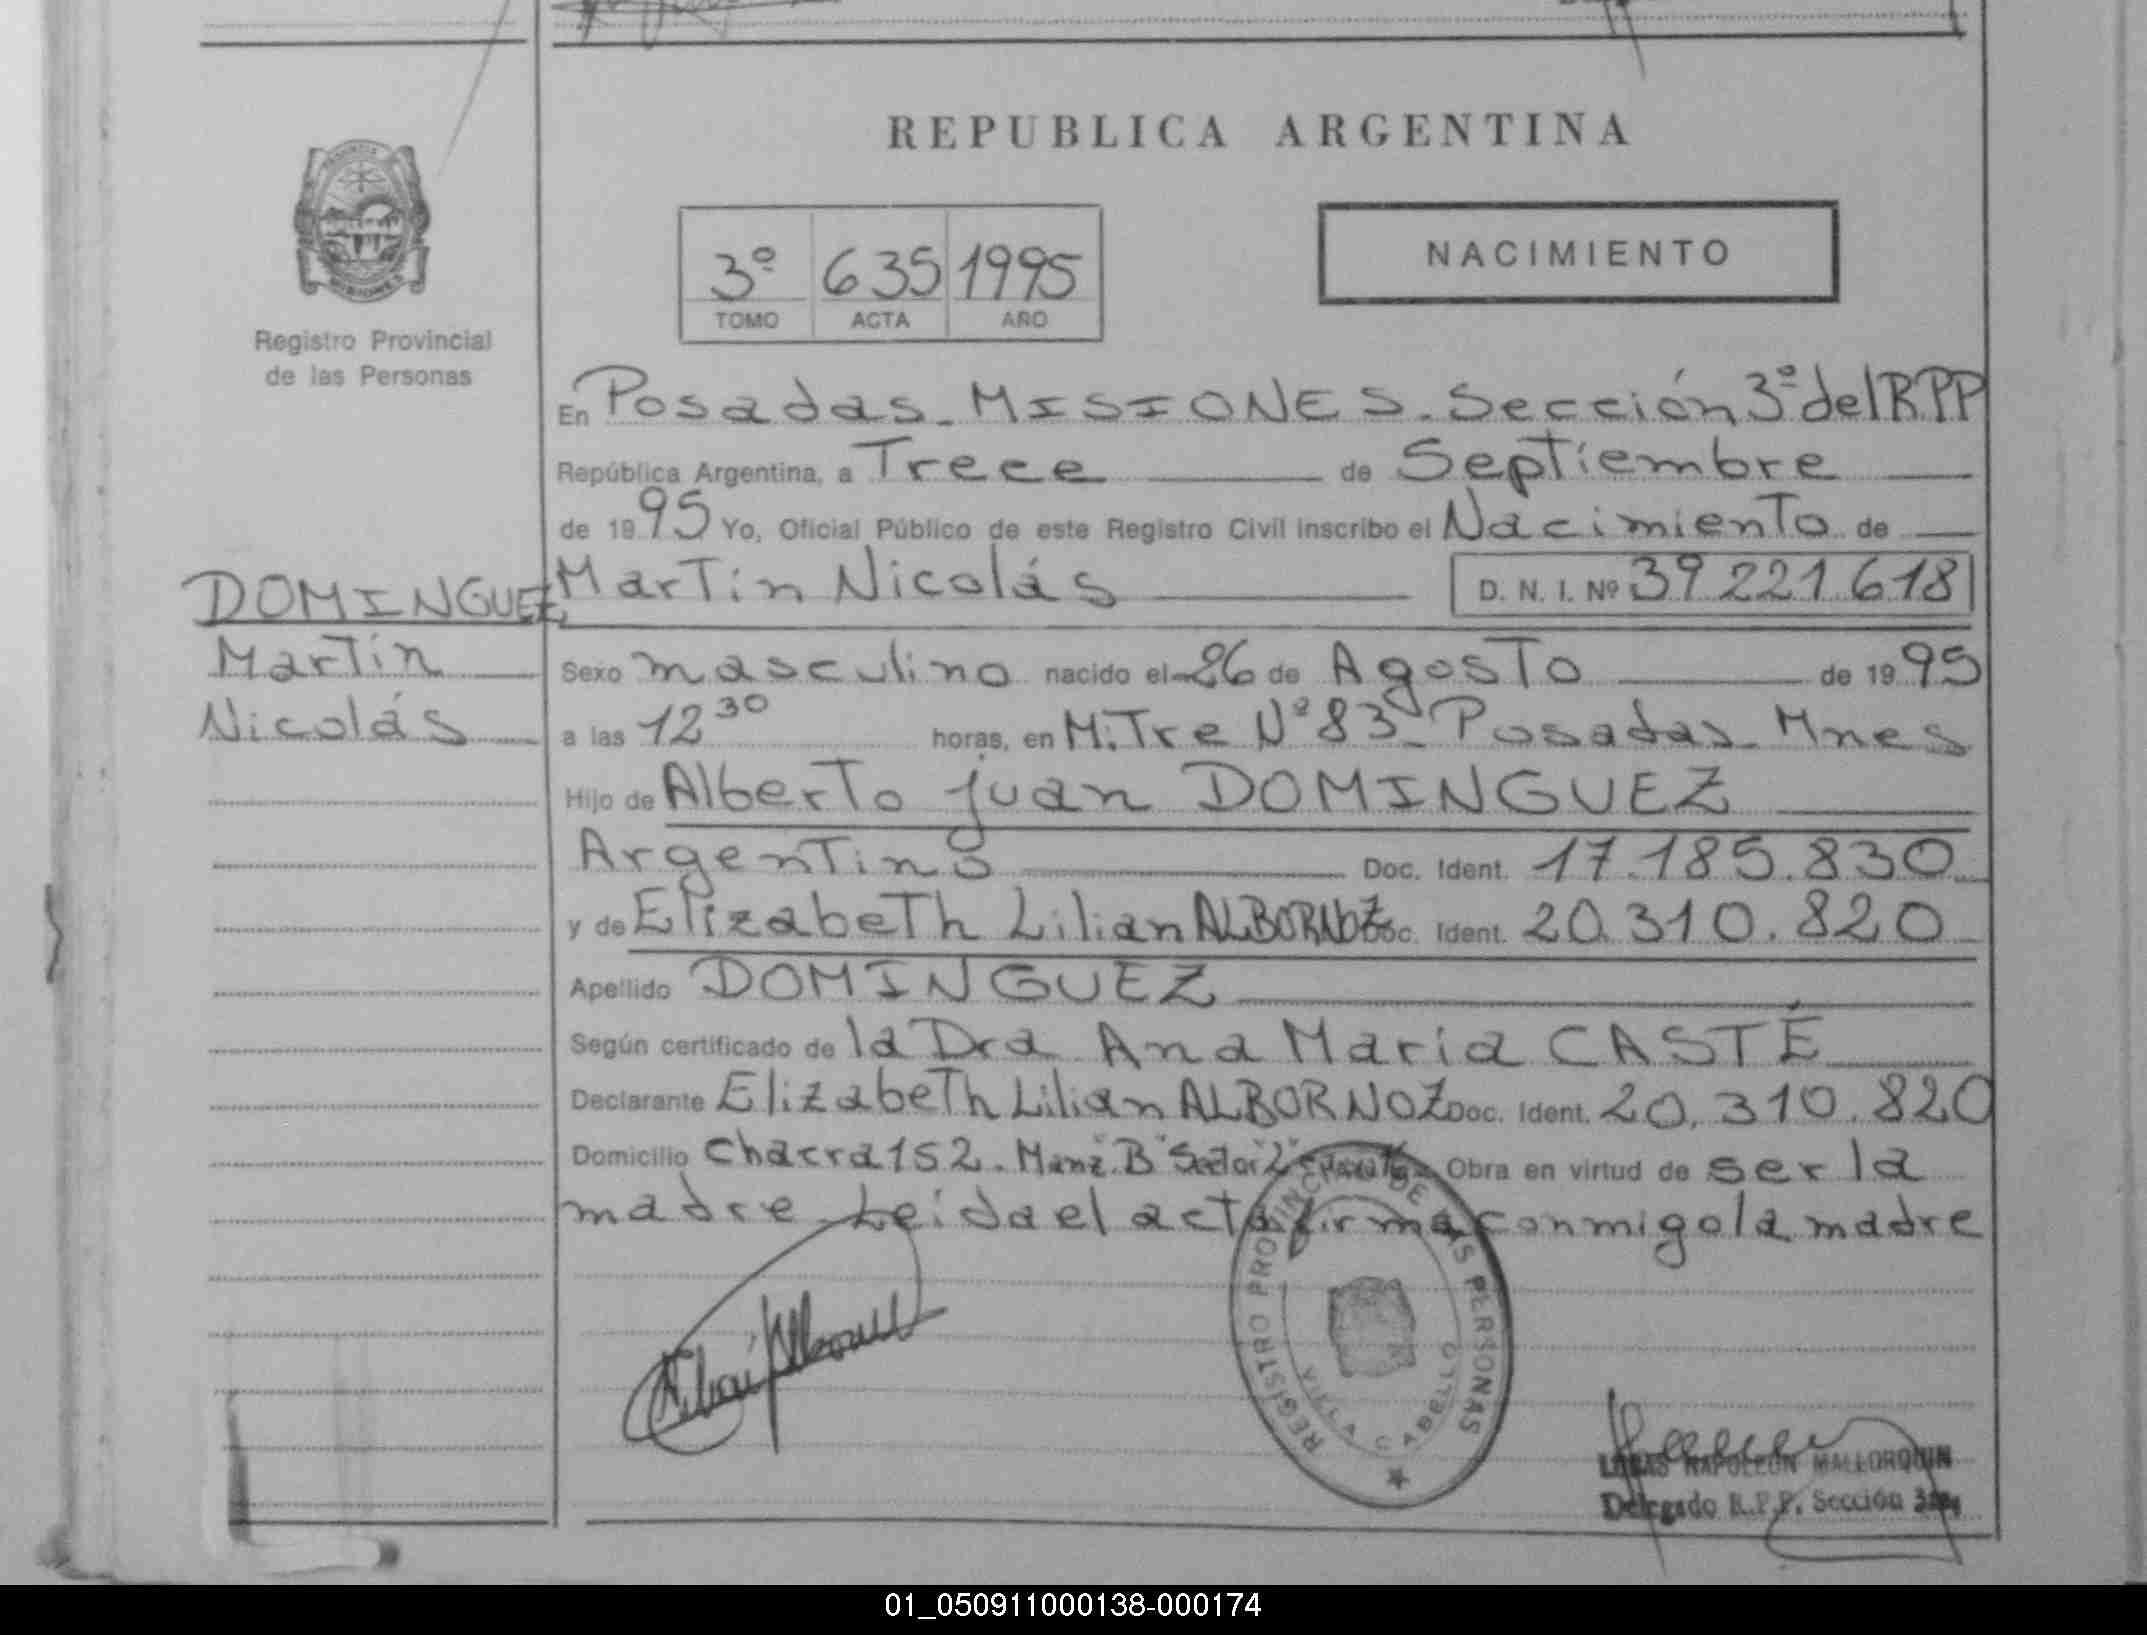 REPUBLICA ARGENTINA
NACIMIENTO
3º 635 1995
TOMO ACTA AÑO
Registro Provincial
de las Personas
En Posadas - MISIONES - Sección 3º del RPP
República Argentina, a Trece de Septiembre
de 1995 Yo, Oficial Público de este Registro Civil inscribo el Nacimiento de
Martín Nicolás D. N. I. Nº 39.221.618
DOMINGUEZ
Martín
Nicolás
Sexo masculino nacido el 26 de Agosto de 1995
a las 12 30 horas, en Mitre Nº 83 - Posadas - Mnes
Hijo de Alberto Juan DOMINGUEZ
Argentino Doc. Ident. 17.185.830
y de Elizabeth Lilian ALBORNOZ Doc. Ident. 20.310.820
Apellido DOMINGUEZ
Según certificado de la Dra Ana María CASTÉ
Declarante Elizabeth Lilian ALBORNOZ Doc. Ident. 20.310.820
Domicilio Chacra 152. Manz. "B" Sector "2" Obra en virtud de ser la
madre. Leida el acta firma conmigo la madre
REGISTRO PROVINCIAL DE LAS PERSONAS
VILLA CABELLO
LUCAS NAPOLEON MALLORQUIN
Delegado R.P.P. Sección 3ra
01_050911000138-000174